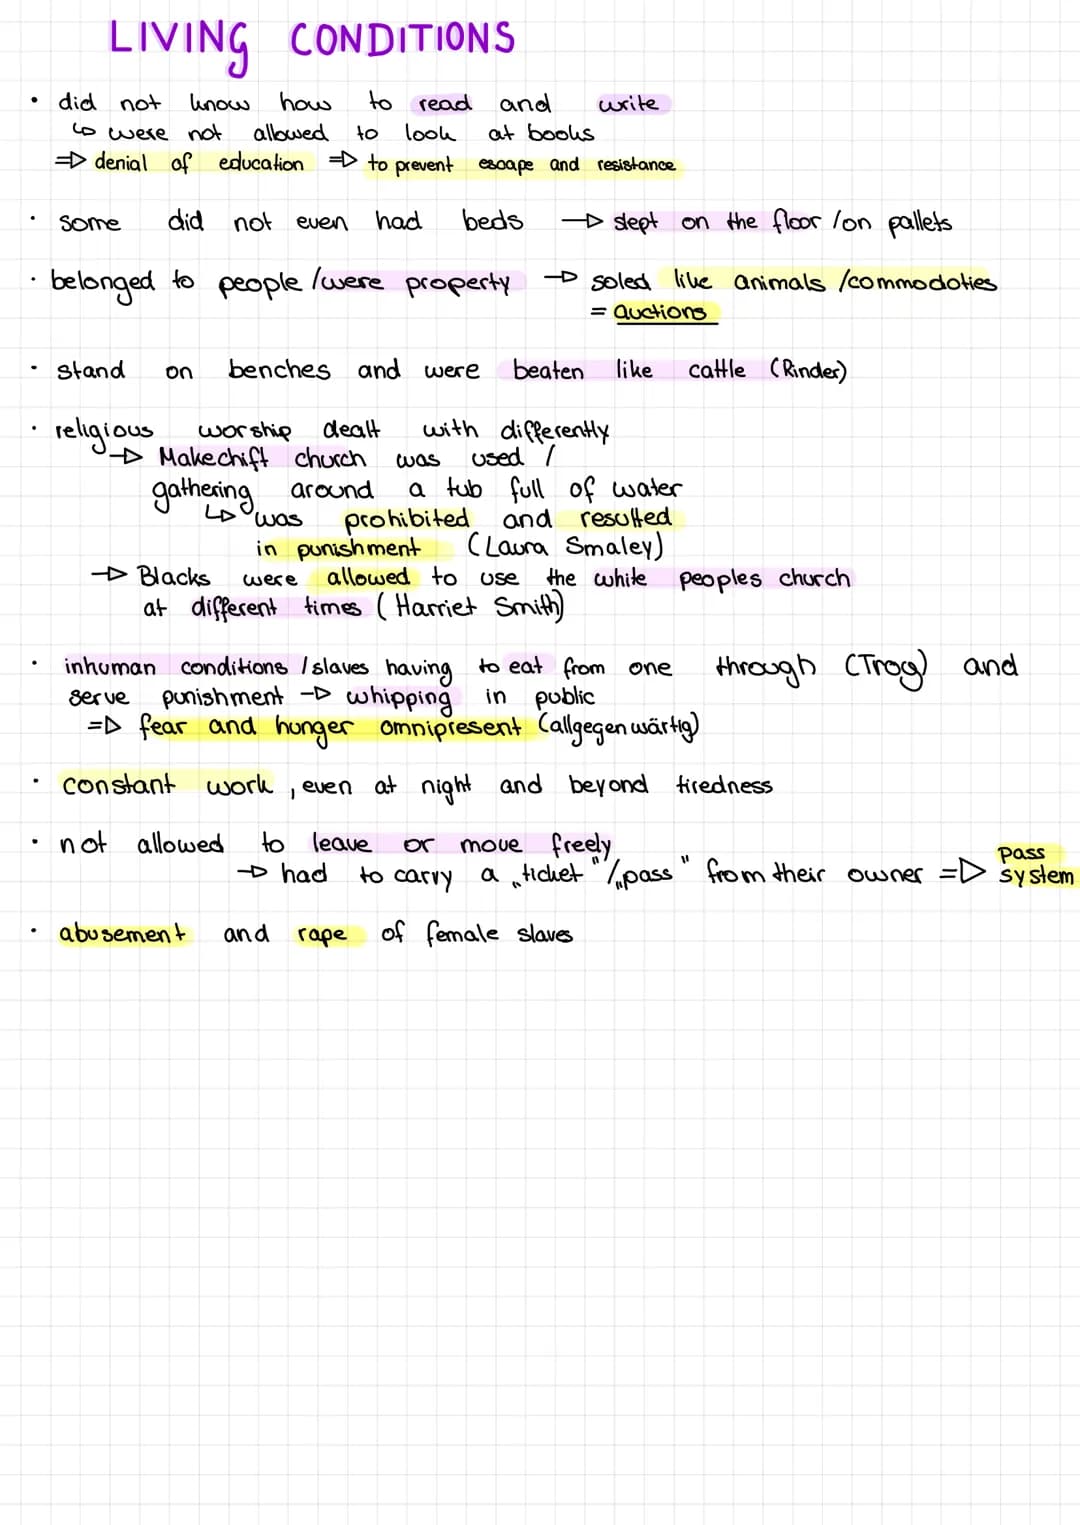 LIVING CONDITIONS
• did not know how to read and write
↳ were not allowed to look at books
=> denial of education => to prevent escape and resistance
• some did not even had beds -> slept on the floor /on pallets
• belonged to people /were property -> soled like animals /commodoties
= auctions
• stand on benches and were beaten like cattle (Rinder)
• religious worship dealt with differently
-> Makechift church was used /
gathering around a tub full of water
↳ was prohibited and resulted
in punishment (Laura Smaley)
-> Blacks were allowed to use the white peoples church
at different times (Harriet Smith)
• inhuman conditions /slaves having to eat from one through (Trog) and
serve punishment -> whipping in public
=> fear and hunger omnipresent (allgegenwärtig)
• constant work, even at night and beyond tiredness
• not allowed to leave or move freely
-> had to carry a „ticket"/„pass" from their owner => pass system
• abusement and rape of female slaves